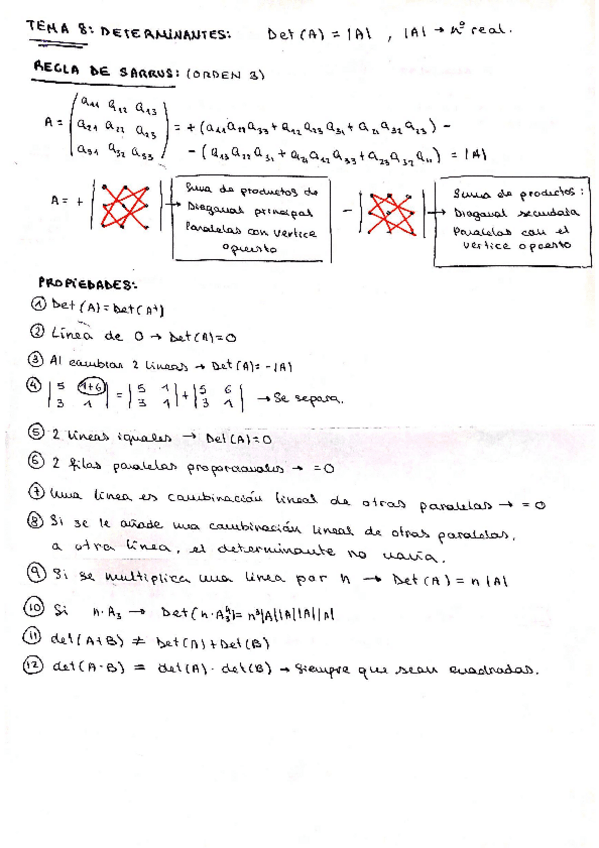 TEMA 8: DETERMINANTES: Det(A) = |A| , |A| → nº real.
REGLA DE SARRUS: (ORDEN 3)
a11 a12 a13
A = a21 a22 a23 = + (a11 a22 a33 + a12 a23 a31 + a21 a32 a23) -
a31 a32 a33 - (a13 a22 a31 + a21 a12 a33 + a23 a32 a11) = |A|
A = + → Suma de productos de
Diagonal principal
Paralelas con vertice
opuesto
- → Suma de productos:
Diagonal secundaria
Paralelas con el
vertice opuesto
PROPIEDADES:
① Det(A) = Det(A^t)
② Línea de 0 → Det(A)=0
③ Al cambiar 2 lineas → Det(A)= -|A|
④ |5 1+6| = |5 1| + |5 6| → Se separa.
|3 1| |3 1| |3 1|
⑤ 2 líneas iguales → Det(A)=0
⑥ 2 filas paralelas proporcionales → = 0
⑦ Una línea es combinación lineal de otras paralelas → = 0
⑧ Si se le añade una combinación lineal de otras paralelas,
a otra línea, el determinante no varía.
⑨ Si se multiplica una línea por n → Det(A) = n|A|
⑩ Si n·A3 → Det(n·A3^4)= n³|A||A||A||A|
⑪ det(A+B) ≠ Det(A)+Det(B)
⑫ det(A·B) = det(A)·det(B) → Siempre que sean cuadradas.